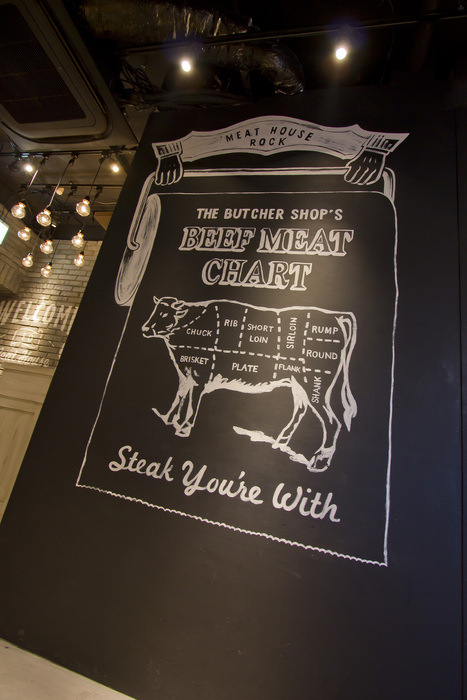 MEAT HOUSE
ROCK
THE BUTCHER SHOP'S
BEEF MEAT
CHART
CHUCK
RIB
SHORT
LOIN
SIRLOIN
RUMP
ROUND
BRISKET
PLATE
FLANK
SHANK
Steak You're With
WELCOME